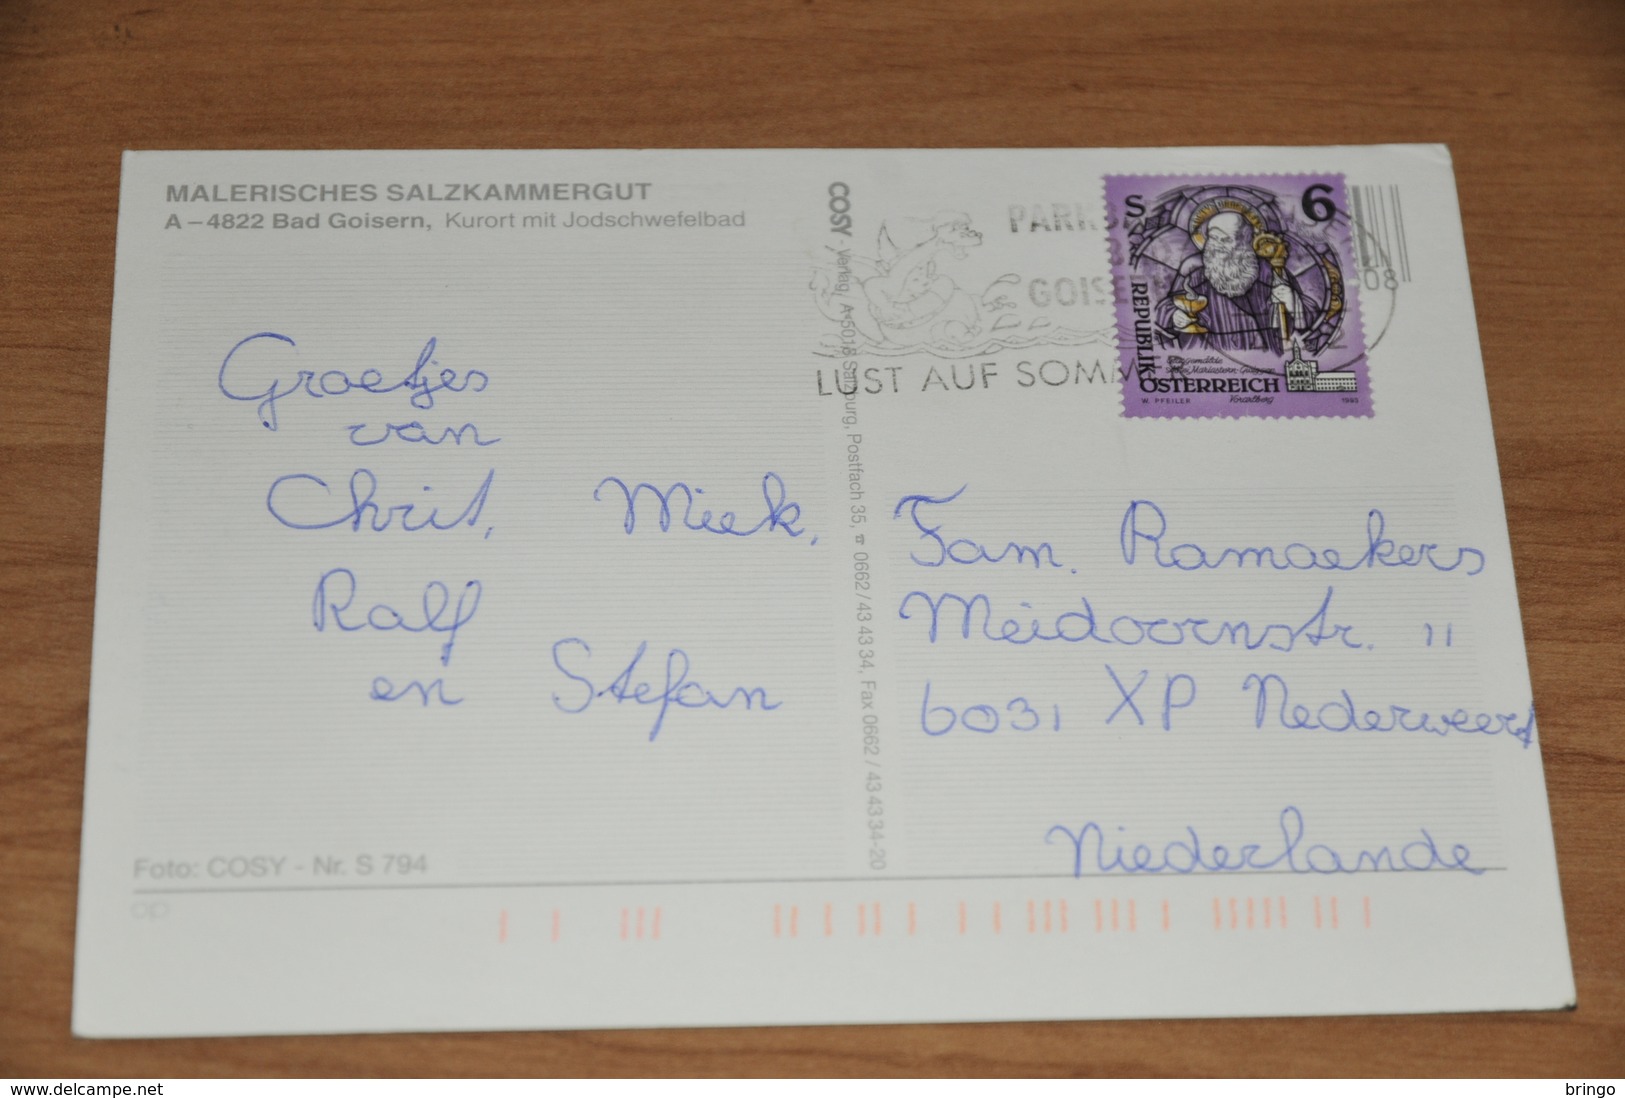 MALERISCHES SALZKAMMERGUT
A – 4822 Bad Goisern, Kurort mit Jodschwefelbad
Groetjes
van
Chrit, Miek,
Ralf
en Stefan
Foto: COSY - Nr. S 794
COSY - Verlag, A-5018 Salzburg, Postfach 35, ☎ 0662 / 43 43 34, Fax 0662 / 43 43 34-20
LUST AUF SOMMER
S 6
REPUBLIK
ÖSTERREICH
W. PFEILER Vorarlberg 1993
Fam. Ramaekers
Meidoornstr. 11
6031 XP Nederweert
Niederlande
delcampe.net
bringo